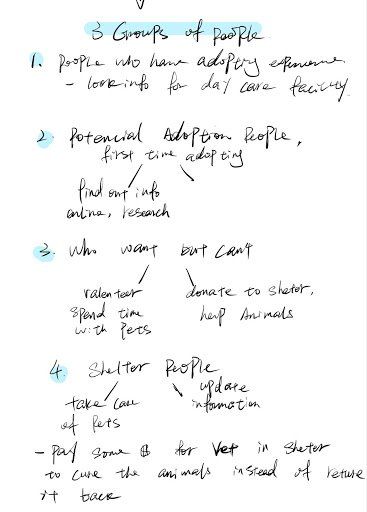 3 Groups of People
1. People who have adopting experience
- look info for day care facility.
2. Potencial Adoption People,
first time adopting
find out info
online, research
3. Who want but can't
valenteer
spend time
with pets
donate to sheter,
help Animals
4. Shelter People
take care
of pets
update
information
- Pay some $ for Vet in sheter
to cure the animals instead of return
it back